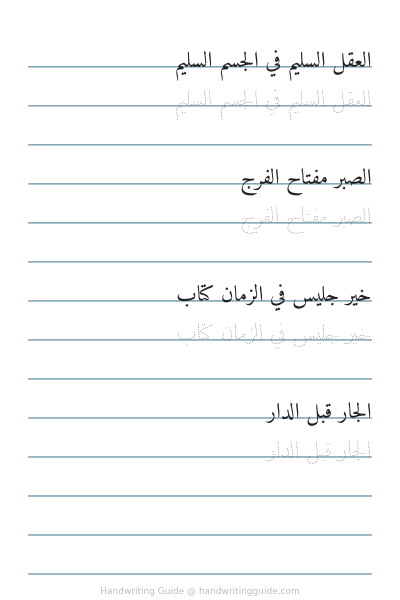 العقل السليم في الجسم السليم
العقل السليم في الجسم السليم
الصبر مفتاح الفرج
الصبر مفتاح الفرج
خير جليس في الزمان كتاب
خير جليس في الزمان كتاب
الجار قبل الدار
الجار قبل الدار
Handwriting Guide @ handwritingguide.com